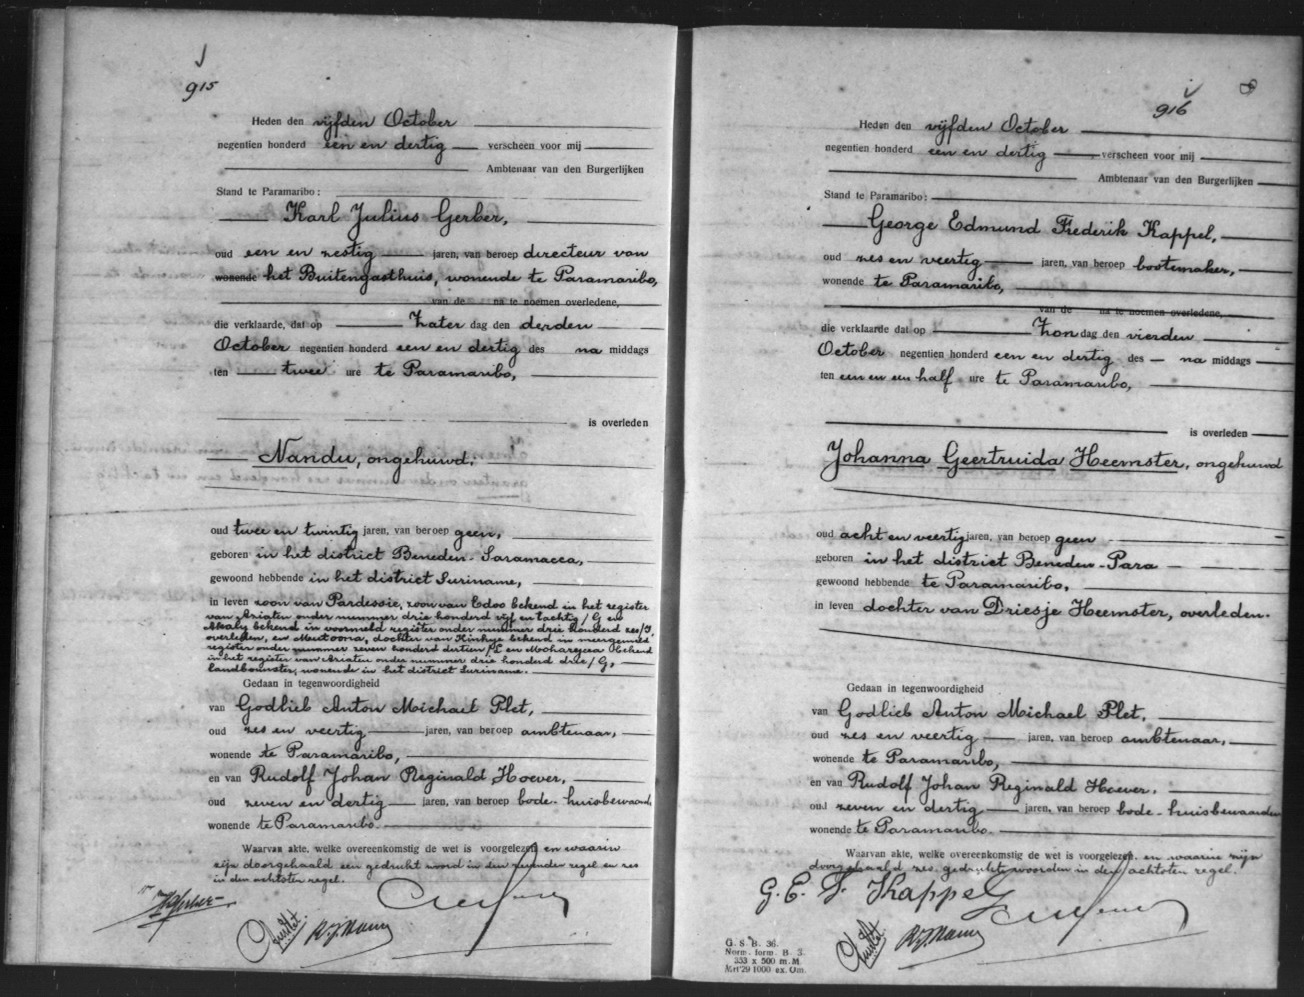 915
Heden den vijfden October
negentien honderd een en dertig verscheen voor mij
Ambtenaar van den Burgerlijken
Stand te Paramaribo:
Karl Julius Gerber,
oud een en zestig jaren, van beroep directeur van
wonende het Buitengasthuis, wonende te Paramaribo,
van de na te noemen overledene,
die verklaarde, dat op Zater dag den derden
October negentien honderd een en dertig des na middags
ten twee ure te Paramaribo,
is overleden
Nandu, ongehuwd.
oud twee en twintig jaren, van beroep geen,
geboren in het district Beneden-Saramacca,
gewoond hebbende in het district Suriname,
in leven zoon van Pardessie, zoon van Edoo bekend in het register
van Aziaten onder nummer drie honderd vijf en tachtig/G en
Mealy bekend in voormeld register onder nummer drie honderd zes/J,
overleden, en Meutoona, dochter van Kinkye bekend in meergemeld
register onder nummer zeven honderd dertien/L en Mocharejcea bekend
in het register van Aziaten onder nummer drie honderd drie/G,
landbouwster, wonende in het district Suriname.
Gedaan in tegenwoordigheid
van Godlieb Anton Michael Plet,
oud zes en veertig jaren, van beroep ambtenaar,
wonende te Paramaribo,
en van Rudolf Johan Reginald Hoever,
oud zeven en dertig jaren, van beroep bode-huisbewaarder
wonende te Paramaribo.
Waarvan akte, welke overeenkomstig de wet is voorgelezen en waarin
zijn doorgehaald een gedrukt woord in den zevenden regel en zes
in den achtsten regel.
8
916
Heden den vijfden October
negentien honderd een en dertig verscheen voor mij
Ambtenaar van den Burgerlijken
Stand te Paramaribo:
George Edmund Frederik Kappel,
oud zes en veertig jaren, van beroep bootemaker,
wonende te Paramaribo,
van de na te noemen overledene,
die verklaarde dat op Zon dag den vierden
October negentien honderd een en dertig des na middags
ten een en een half ure te Paramaribo,
is overleden
Johanna Geertruida Heemster, ongehuwd
oud acht en veertig jaren, van beroep geen
geboren in het district Beneden-Para
gewoond hebbende te Paramaribo,
in leven dochter van Driesje Heemster, overleden.
Gedaan in tegenwoordigheid
van Godlieb Anton Michael Plet,
oud zes en veertig jaren, van beroep ambtenaar,
wonende te Paramaribo,
en van Rudolf Johan Reginald Hoever,
oud zeven en dertig jaren, van beroep bode-huisbewaarder
wonende te Paramaribo.
Waarvan akte, welke overeenkomstig de wet is voorgelezen. en waarin zijn
doorgehaald zes gedrukte woorden in den achtsten regel.
G. E. F. Kappel
G. S. B. 36.
Norm. form. B. 3.
333 x 500 m.M.
Mrt '29 1000 ex. Om.